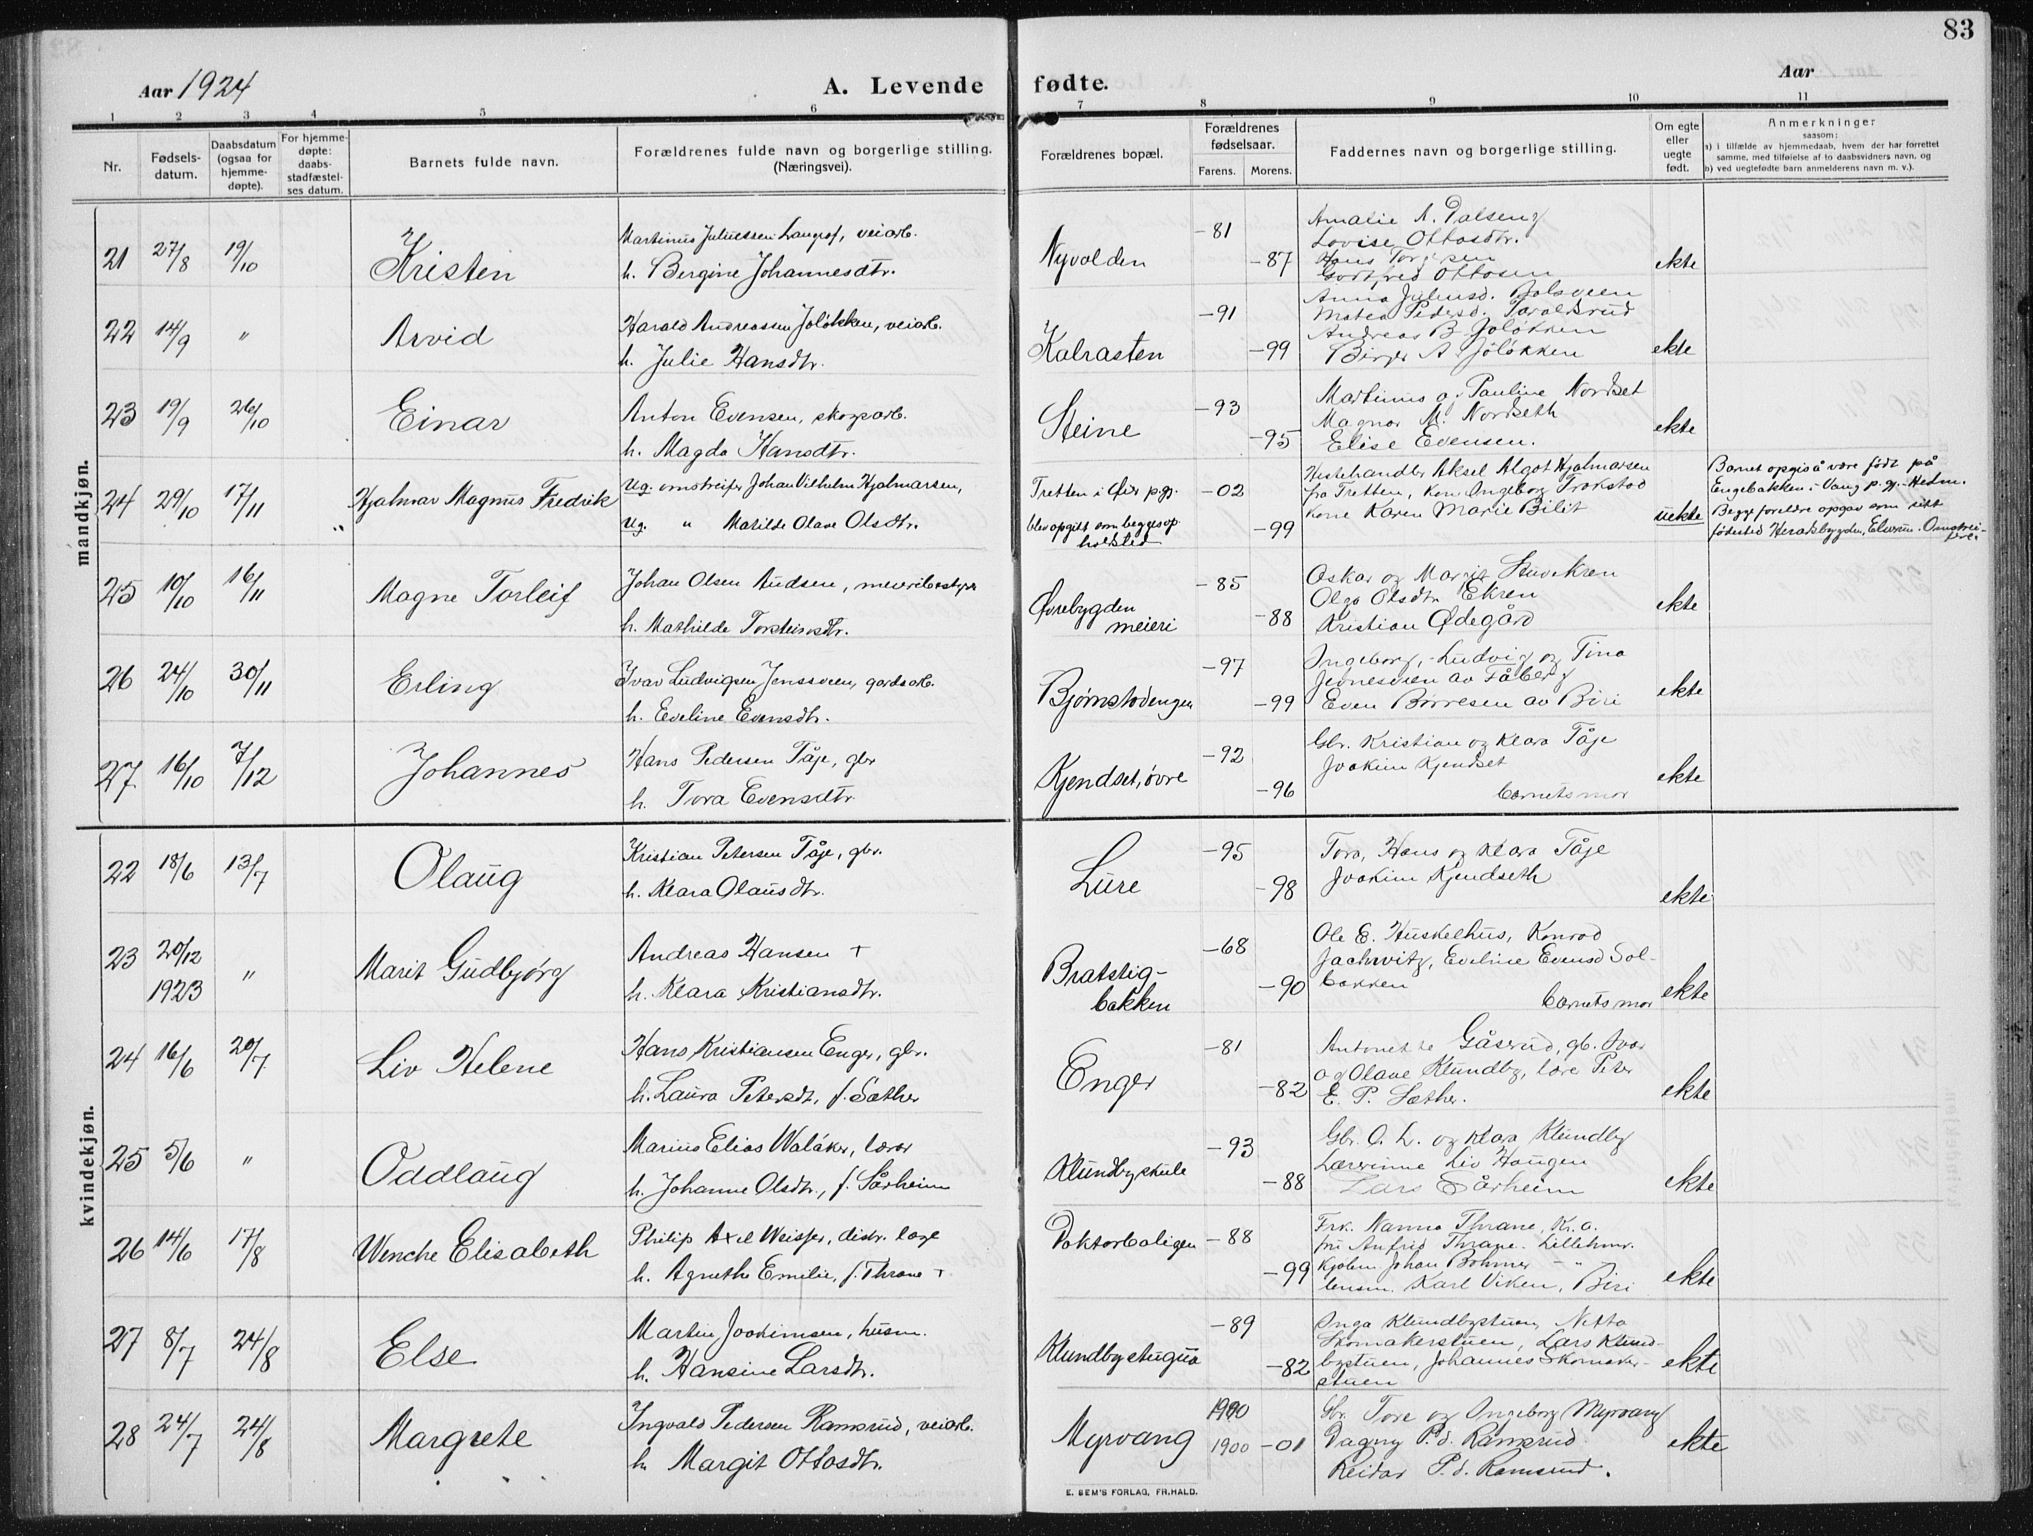 83
Aar 1924
A. Levende fødte.
Aar
1 2 3 4 5 6 7 8 9 10 11
Nr.
Fødsels-
datum.
Daabsdatum
(ogsaa for
hjemme-
døpte).
For hjemme-
døpte:
daabs-
stadfæstel-
ses datum.
Barnets fulde navn.
Forældrenes fulde navn og borgerlige stilling.
(Næringsvei).
Forældrenes bopæl.
Forældrenes
fødselsaar.
Farens. Morens.
Faddernes navn og borgerlige stilling.
Om egte
eller
uegte
født.
Anmerkninger
saasom:
a) i tilfælde av hjemmedaab, hvem der har forrettet
samme, med tilføielse af to daabsvidners navn, og
b) ved uegtefødte barn anmelderens navn m. v.).
mandkjøn.
21 27/8 19/10 Kristen
Martinus Juliussen, veiarb.
h. Bergine Johannesdtr.
Nyvolden -81 -87
Amalie A. Dalseng
Lovise Ottosdtr.
Hans Torgersen
Godtfred Ottosen
ekte
22 14/9 " Arvid
Harald Andreassen Joløkken, veiarb.
h. Julie Hansdtr.
Kalrasten -91 -99
Anna Juliusd. Dalsveen
Matea Pedersd. Taraldsrud
Andreas B. Joløkken
Birger A. Joløkken
ekte
23 19/9 26/10 Einar
Anton Evensen, skogarb.
h. Magda Hansdtr.
Steine -93 -95
Martinus og Pauline Nordset
Magnar M. Nordseth
Elise Evensen.
ekte
24 29/10 17/11 " Hjalmar Magnus Fredrik
Ug. omstreifer Johan Vilhelm Hjalmarsen,
Ug. " Matilde Olave Olsdtr.
Tretten i Øier p.gj.
blev opgitt som begges op-
holsted
-02 -99
Hestehandler Aksel Algot Hjalmarsen
fra Tretten, kone Ingeborg Trokstad
kone Karen Marie Bilit
uekte
Barnet opgis å være født på
Engebakken i Vang p.gj. Hedm.
Begge foreldre opgav som sitt
fødested Heradsbygden, Elverum. Omstrei-
fere
25 10/10 16/11 Magne Torleif
Johan Olsen Audsen, meieribestyrer
h. Mathilde Torsteinsdtr.
Øvrebygden
meieri
-85 -88
Oskar og Margit Stuvekren
Olga Olsdtr Ekren
Kristian Ødegård
ekte
26 24/10 30/11 Erling
Ivar Ludvigsen Jenssveen, gardsarb.
h. Eveline Evensdtr.
Bjørnstadengen -97 -99
Ingeborg, Ludvig og Tina
Jevnesveen av Fåberg
Even Børresen av Biri
ekte
27 16/10 7/12 Johannes
Hans Pedersen Tåje, gbr
h. Tora Evensdtr
Kjendset, øvre -92 -96
Gbr. Kristian og Klara Tåje
Joakim Kjendset
barnets mor
ekte
kvindekjøn.
22 18/6 13/7 Olaug
Kristian Petersen Tåje, gbr.
h. Klara Olausdtr.
Lure -95 -98
Tora, Hans og Klara Tåje
Joakim Kjendseth
ekte
23 20/12 1923 " Marit Gudbjørg
Andreas Hansen +
h. Klara Kristiansdtr.
Bratstig-
bakken
-68 -90
Ole E. Huskelhus, Konrad
Jachwitz, Eveline Evensd Sol-
bakken
barnets mor
ekte
24 16/6 20/7 Liv Helene
Hans Kristiansen Enger, gbr.
h. Laura Petersdt, f. Sæther
Enger -81 -82
Antonette Gåserud, gb. Ivar
og Olave Klundby, lære Peter
E. P. Sæther.
ekte
25 5/6 " Oddlaug
Marius Elias Walåker, lærer
h. Johanne Olsdtr, f. Sårheim
Klundby skule -93 -88
Gbr. O. L. og Klara Klundby
Lærerinne Liv Haugen
Lars Sårheim
ekte
26 14/6 17/8 Wenche Elisabeth
Philip Axel Weisser, distr. læge
h. Agnethe Emilie, f. Thrane +
Doktorboligen -88 -99
Frk. Nanna Thrane, Kr.a.
fru Anfrid Thrane - Lillehmr.
Kjøbm Johan Bøhmer - "
lensm. Karl Viken, Biri
ekte
27 8/7 24/8 Else
Martin Joakimsen, husm.
h. Hansine Larsdtr.
Klundbystugua -89 -82
Inga Klundbystuen, Netta
Skomakerstuen, Lars Klund-
bystuen, Johannes Skomaker-
stuen
ekte
28 24/7 24/8 Margrete
Ingvald Pedersen Ramsrud, veiarb.
h. Margit Ottosdtr.
Myrvang 1900 1900 -01
Gbr. Tore og Ingeborg Myrvang
Dagny P.d. Ramsrud
Reidar P.d. Ramsrud.
ekte
E. SEM'S FORLAG, FR.HALD.